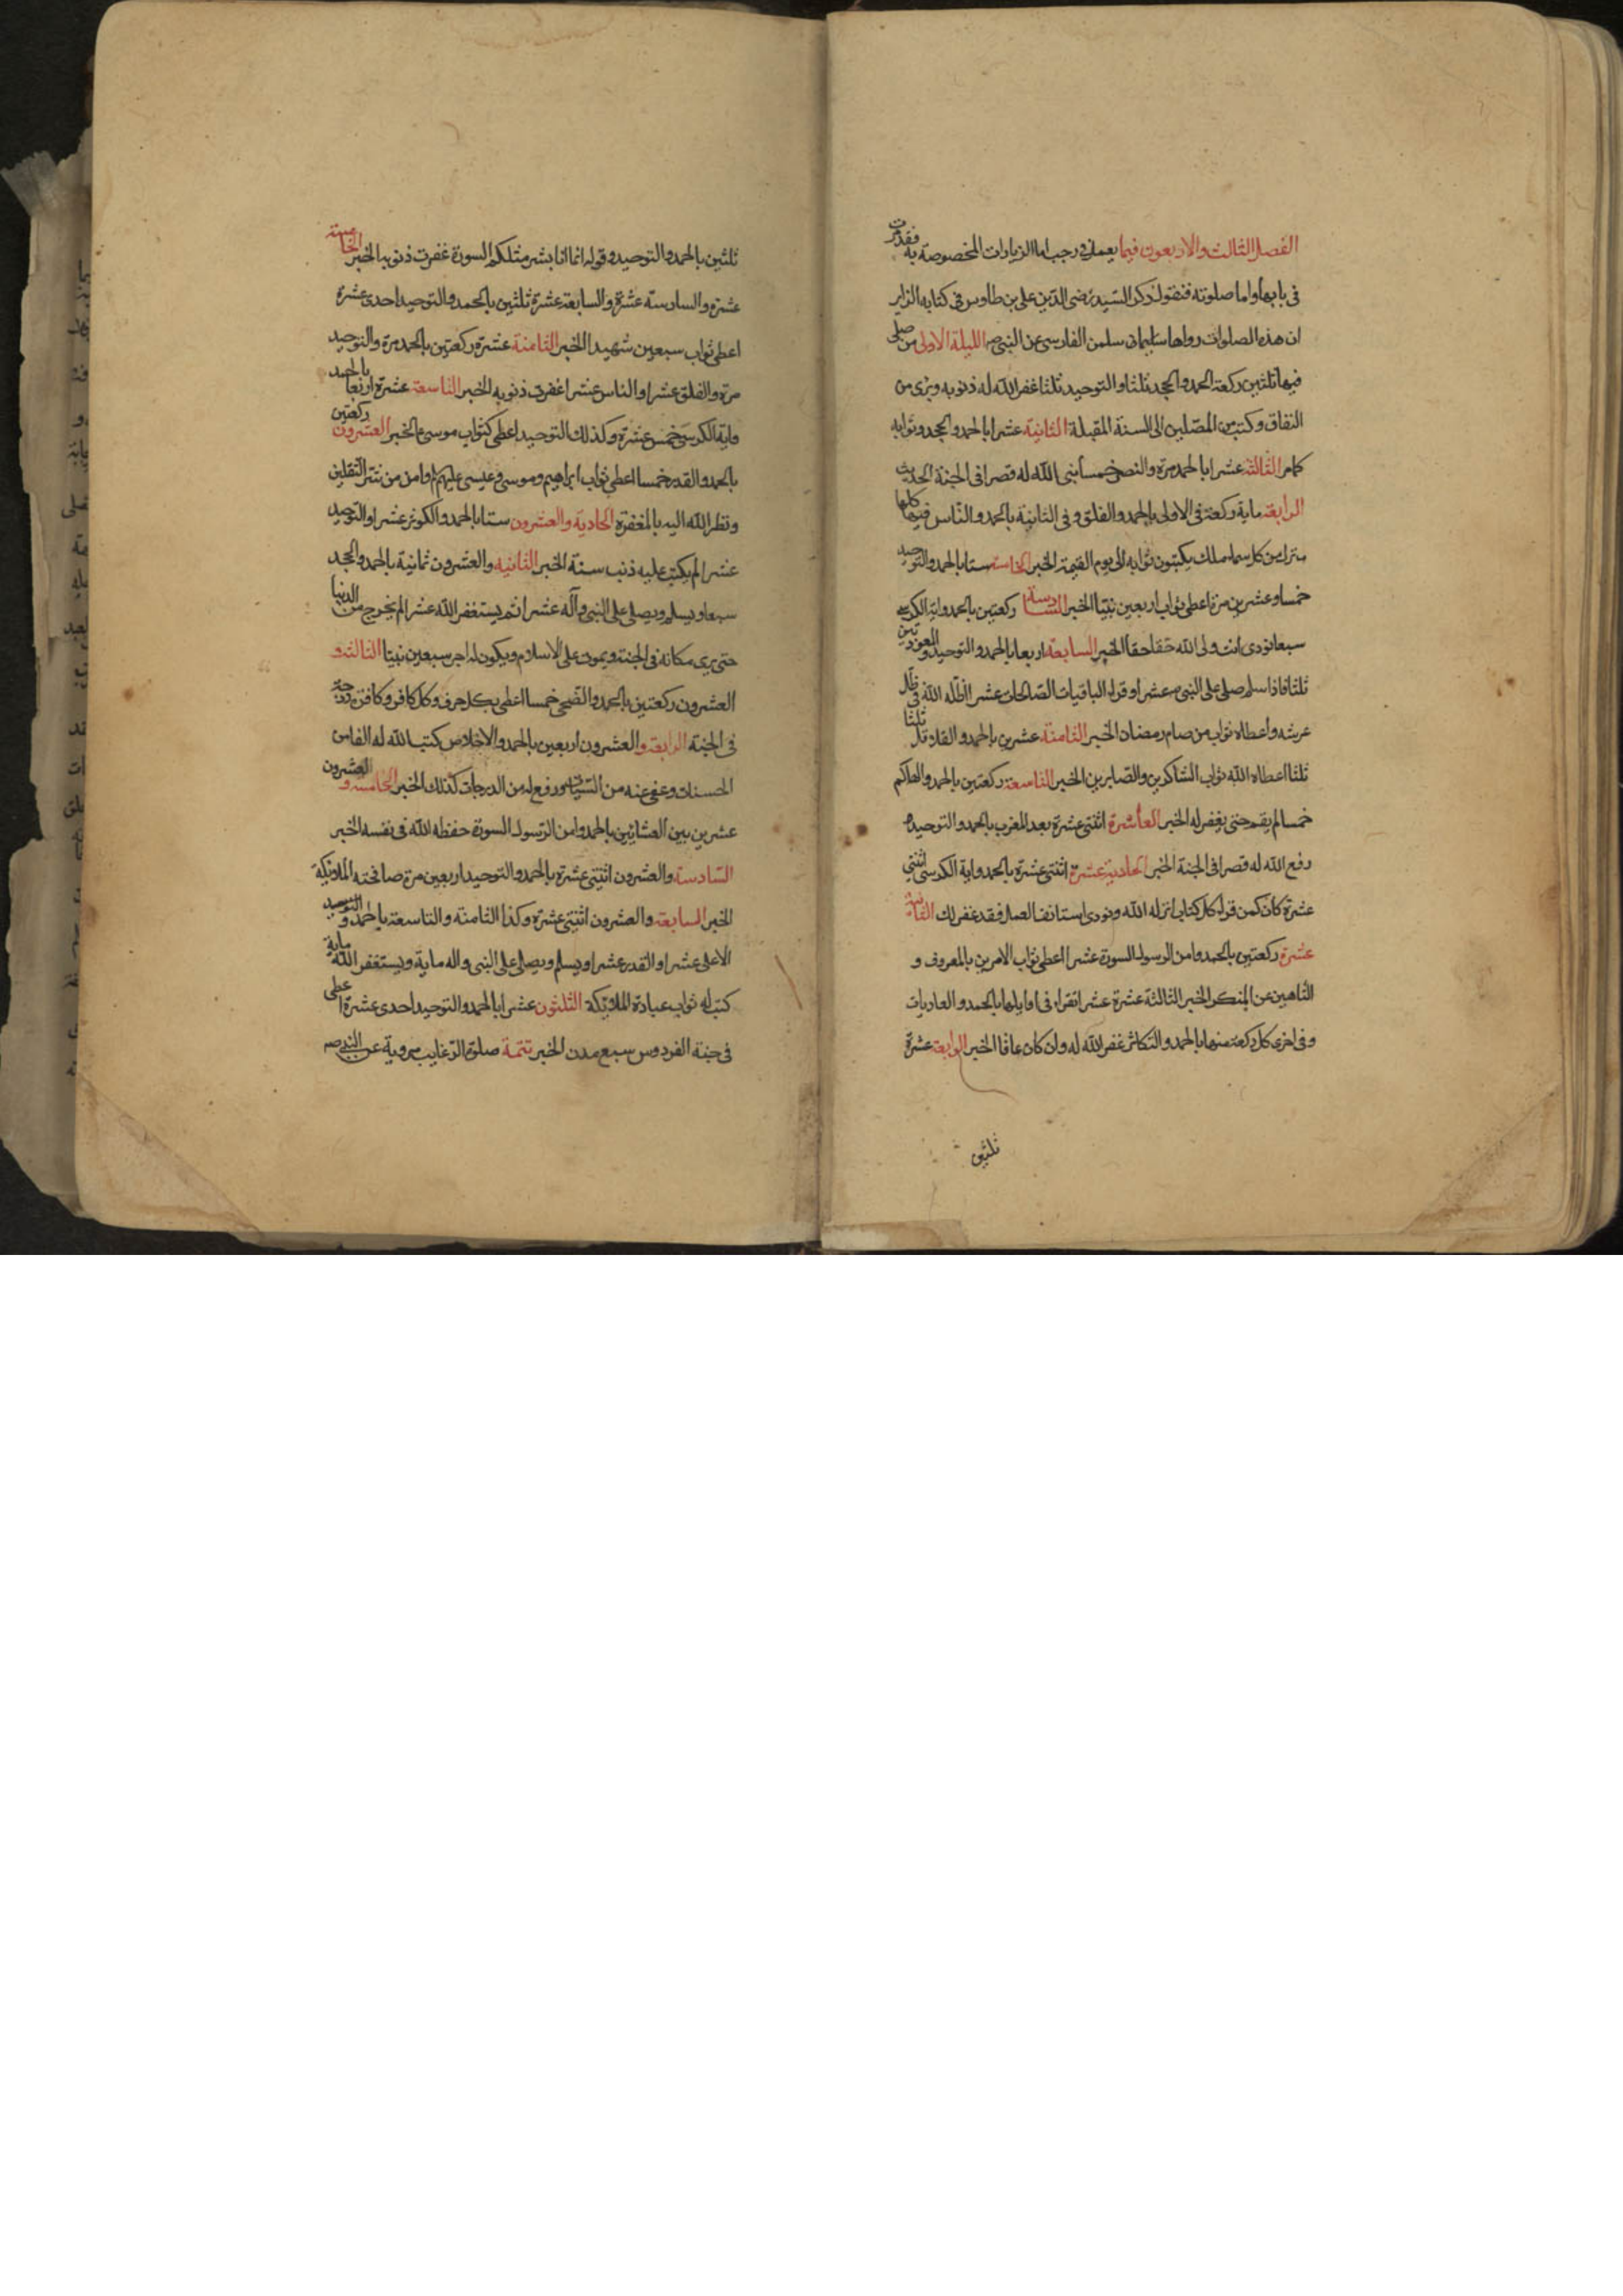 الفصل الثالث والاربعون فيما يعمل في رجب اما الزيارات المخصوصة به فقد مرت
في بابها واما صلوته فنقول ذكر السيد رضى الدين على بن طاوس في كتابه الزاير
ان هذه الصلوات رواها سلمن الفارسى عن النبى ص الليلة الاولى من صلى
فيها ثلثين ركعة الحمد والجحد ثلثا والتوحيد ثلثا غفر الله له ذنوبه وبرى من
النفاق وكتب من المصلين الى السنة المقبلة الثانية عشرا بالحمد والجحد وثوابه
كامر الثالثة عشرا بالحمد مرة والنصر خمسا بنى الله له قصرا في الجنة الحديث
الرابعة ماية ركعة في الاولى بالحمد والفلق وفى الثانية بالحمد والناس فيهما كلها
ينزل من كل سماء ملك يكتبون ثوابه الى يوم القيمة الخبر الخامسة ستا بالحمد والتوحيد
خمسا وعشرين مرة اعطى ثواب اربعين نبيا الخبر السادسة ركعتين بالحمد واية الكرسى
سبعا نودى انت ولى الله حقا حقا الخبر السابعة اربعا بالحمد والتوحيد والمعوذتين
ثلثا فاذا سلم صلى على النبى ص عشرا وقراء الباقيات الصالحات عشرا اظله الله في ظل
عرشه واعطاه ثواب من صام رمضان الخبر الثامنة عشرين بالحمد والقلاقل ثلثا
ثلثا اعطاه الله ثواب الشاكرين والصابرين الخبر التاسعة ركعتين بالحمد والهاكم
خمسا لم يقم حتى يغفر له الخبر العاشرة اثنتى عشرة بعد المغرب بالحمد والتوحيد
رفع الله له قصرا في الجنة الخبر الحادية عشرة اثنتى عشرة بالحمد واية الكرسى اثنتى
عشرة كان كمن قراء كل كتاب انزله الله ونودى استانف العمل فقد غفر لك الثانية
عشرة ركعتين بالحمد وامن الرسول السورة عشرا اعطى ثواب الامرين بالمعروف و
الناهين عن المنكر الخبر الثالثة عشرة عشرا تقراء في اوايلها بالحمد والعاديات
وفى اخرى كل ركعة منها بالحمد والتكاثر غفر الله له وان كان عاقا الخبر الرابعة عشرة
ثلثين
ثلثين بالحمد والتوحيد وقوله انما انا بشر مثلكم السورة غفرت ذنوبه الخبر الخامسة
عشرة والسادسة عشرة والسابعة عشرة ثلثين بالحمد والتوحيد احدى عشرة
اعطى ثواب سبعين شهيدا الخبر الثامنة عشرة ركعتين بالحمد مرة والتوحيد
مرة والفلق عشرا والناس عشرا غفرت ذنوبه الخبر التاسعة عشرة اربعا بالحمد
واية الكرسى خمس عشرة وكذلك التوحيد اعطى كثواب موسى ع الخبر العشرون ركعتين
بالحمد والقدر خمسا اعطى ثواب ابراهيم وموسى وعيسى عليهم وامن من شر الثقلين
ونظر الله اليه بالمغفرة الحادية والعشرون ستا بالحمد والكوثر عشرا والتوحيد
عشرا لم يكتب عليه ذنب سنة الخبر الثانية والعشرون ثمانية بالحمد والجحد
سبعا ويسلم ويصلى على النبى وآله عشرا ثم يستغفر الله عشرا لم يخرج من الدنيا
حتى يرى مكانه في الجنة ويموت على الاسلام ويكون له اجر سبعين نبيا الثالثة و
العشرون ركعتين بالحمد والضحى خمسا اعطى بكل حرف وكل كافر وكافرة درجة
في الجنة الرابعة والعشرون اربعين بالحمد والاخلاص كتب الله له الفا من
الحسنات وعفى عنه من السيئات ورفع له من الدرجات كذلك الخبر الخامسة و العشرون
عشرين بين العشائين بالحمد وامن الرسول السورة حفظه الله في نفسه الخبر
السادسة والعشرون اثنتى عشرة بالحمد والتوحيد اربعين مرة صافحته الملائكة
الخبر السابعة والعشرون اثنتى عشرة وكذا الثامنة والتاسعة بالحمد و التوحيد
الاعلى عشرا والقدر عشرا ويسلم ويصلى على النبى واله ماية ويستغفر الله ماية
كتب له ثواب عبادة الملائكة الثلثون عشرا بالحمد والتوحيد احدى عشرة اعطى
في جنة الفردوس سبع مدن الخبر تتمة صلوة الرغايب مروية عن النبى ص